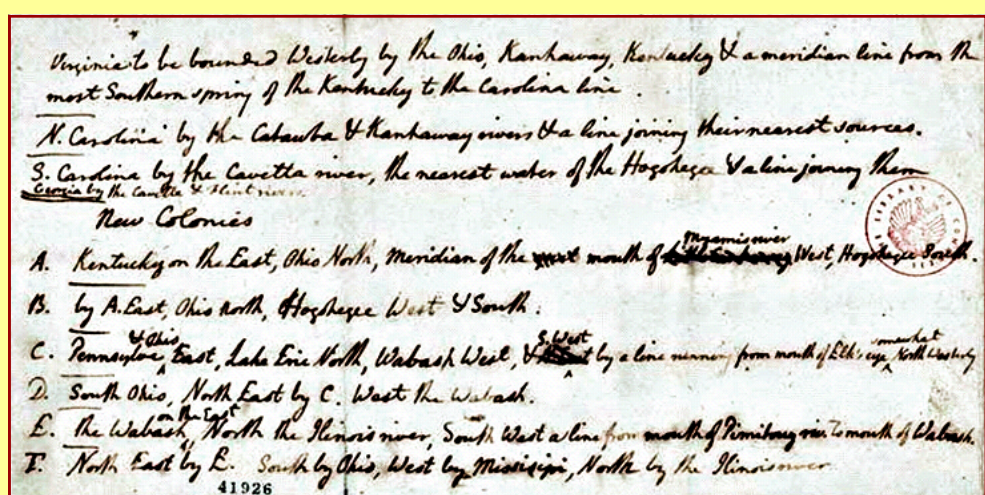 Virginia to be bounded Westerly by the Ohio, Kanhaway, Kentuckey & a meridian line from the
most Southern spring of the Kentuckey to the Carolina line.
N. Carolina by the Catawba & Kanhaway rivers & a line joining their nearest sources.
S. Carolina by the Cavetta river, the nearest water of the Hogohegee & a line joining them
Georgia by the Cavetta & flint rivers.
New Colonies
A. Kentuckey on the East, Ohio North, Meridian of the mouth of Myamis river West, Hogohegee South.
B. by A. East, Ohio north, Hogohegee West & South.
C. Pennsylva & Ohio East, Lake Erie North, Wabash West, & S. West by a line running from mouth of Elk's eye somewhat North Westerly
D. South Ohio, North East by C. West the Wabash.
E. the Wabash on the East, North the Ilinois river, South West a line from mouth of Pimiboug riv. to mouth of Wabash.
F. North East by E. South by Ohio, West by Missisipi, North by the Ilinois river
41926